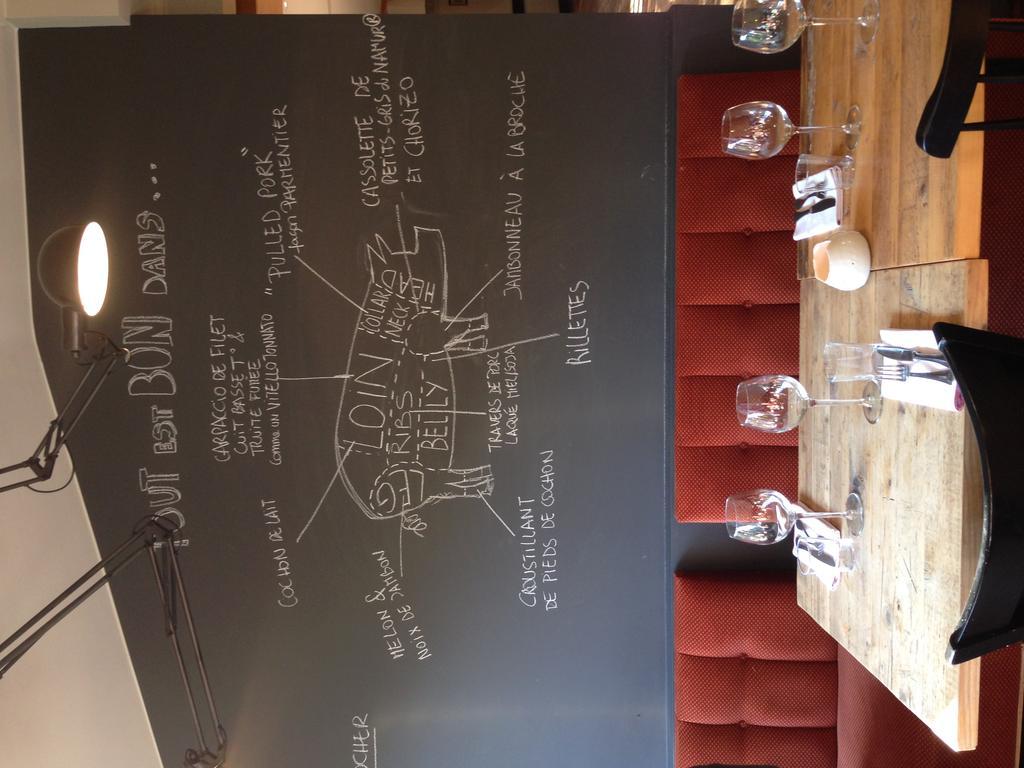 TOUT EST BON DANS...
CARPACCIO DE FILET
CUIT BASSE T° &
TRUITE FUMÉE
Comme un VITELLO TONNATO
"PULLED PORK"
façon PARMENTIER
COCHON DE LAIT
CASSOLETTE DE
PETITS-GRIS de NAMUR
ET CHORIZO
LOIN
KOLLAR
NECK
RIBS
BELLY
MELON &
NOIX DE JAMBON
TRAVERS DE PORC
LAQUÉ
JAMBONNEAU À LA BROCHE
CROUSTILLANT
DE PIEDS DE COCHON
RILLETTES
OCHER